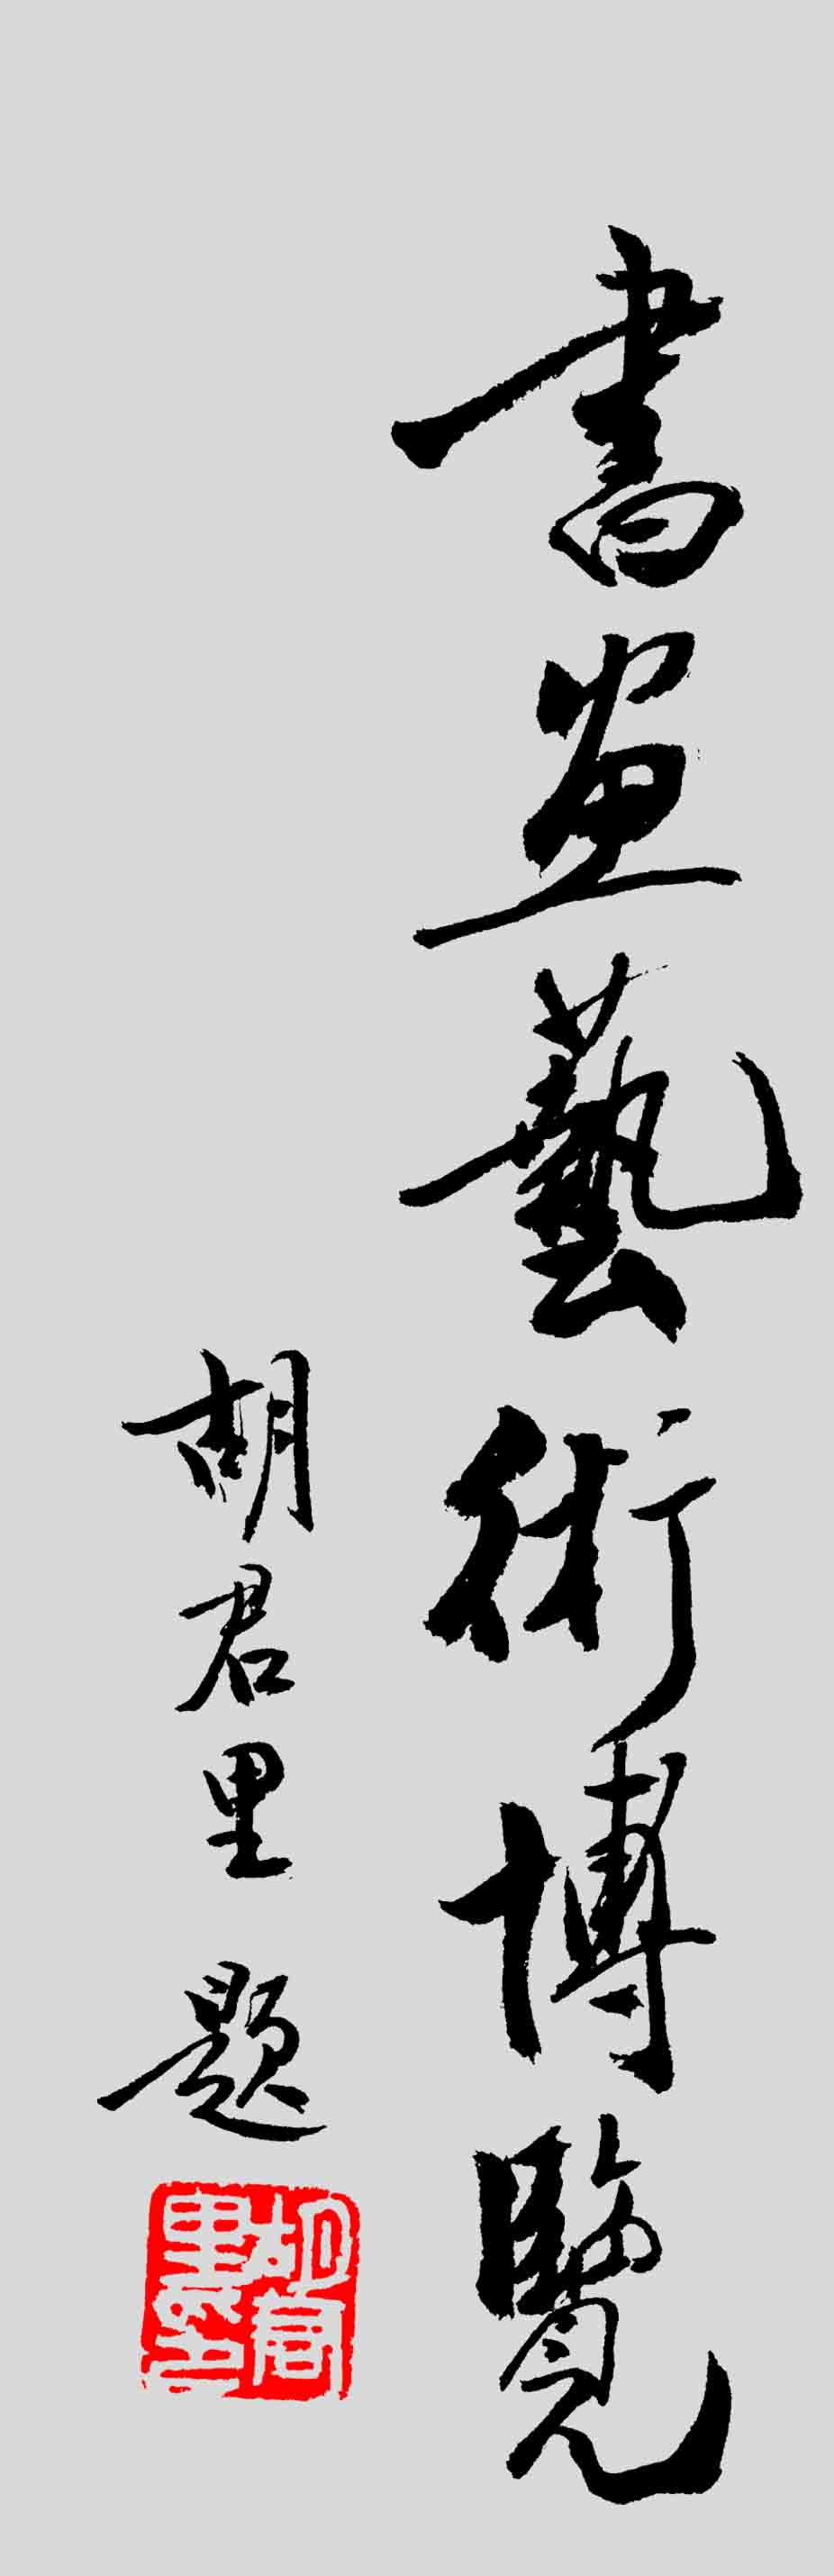 書畫藝術博覽
胡君里 題
胡君里印